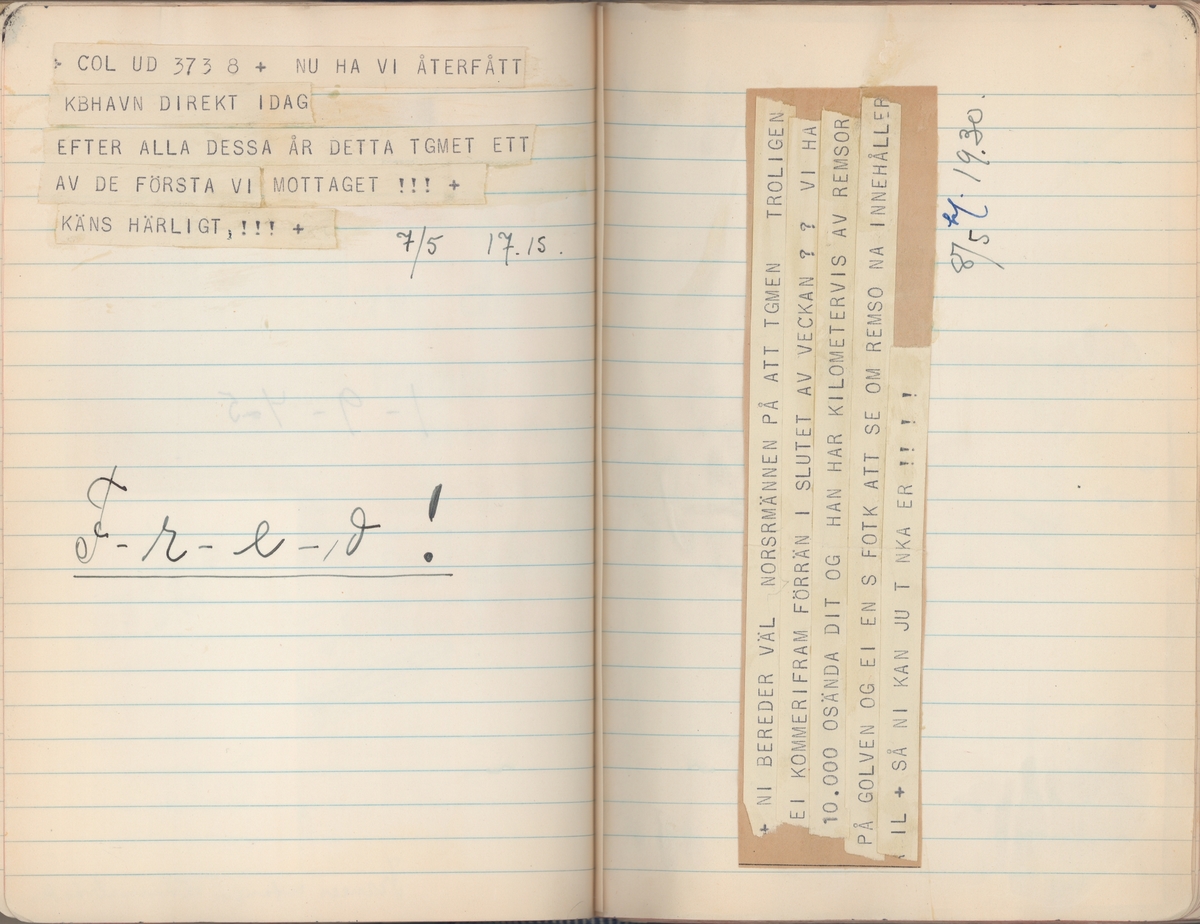 + COL UD 373 8 + NU HA VI ÅTERFÅTT
KBHAVN DIREKT IDAG
EFTER ALLA DESSA ÅR DETTA TGMET ETT
AV DE FÖRSTA VI MOTTAGET !!! +
KÄNS HÄRLIGT,!!! +
7/5 17.15.
1-9-4-5
F-r-e-d!
+ NI BEREDER VÄL NORSRMÄNNEN PÅ ATT TGMEN TROLIGEN
EI KOMMERIFRAM FÖRRÄN I SLUTET AV VECKAN ? ? VI HA
10.000 OSÄNDA DIT OG HAN HAR KILOMETERVIS AV REMSOR
PÅ GOLVEN OG EI EN S FOTK ATT SE OM REMSO NA INNEHÅLLER
IL + SÅ NI KAN JU T NKA ER !! ! !
8/5 19.30.